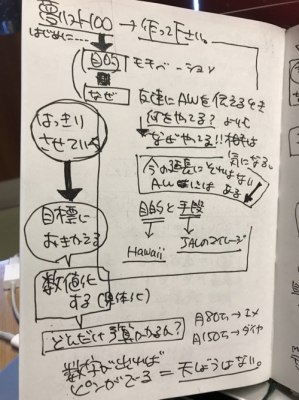 夢リスト100 → 作って下さい。
はじめに・・・
目的 モチベーション
なぜ 友達にAWを伝えるとき
何をやる？より
なぜやる!!相手は
気になる。
はっきり
させていく
今の延長にそれはない
AWにはある
目標に
おきかえる
目的と手段
Hawaii JALのマイレージ
数値化
する(具体化)
どんだけお金かかるん？
月80万→エメ
月150万→ダイヤ
数字が出れば
ピンがでる = 天じょうはない。